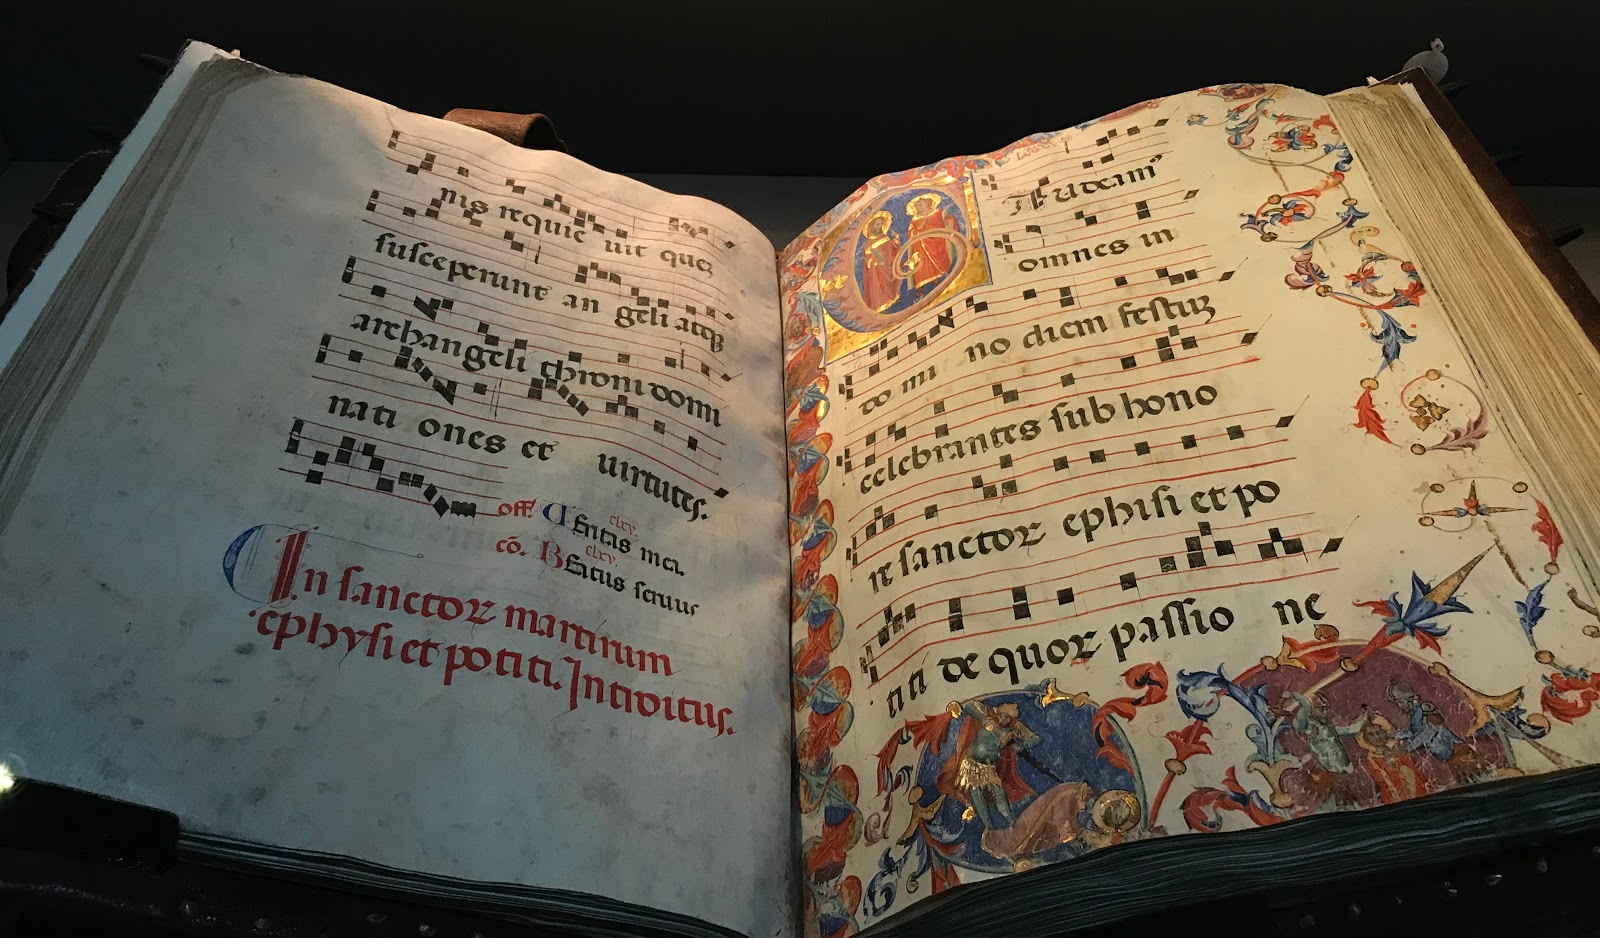 nis requie uit quez
susceperunt an geli atqz
archangeli throni domi
nati ones et uirtutes.
off. Ueritas mea. clxv.
cō. Beatus seruus clxv.
In sanctorz martirum
ephysi et potiti. Introitus.
Gaudeam'
omnes in
do mi no diem festuz
celebrantes sub hono
re sanctorz ephisi et po
ti ti de quorz passio ne